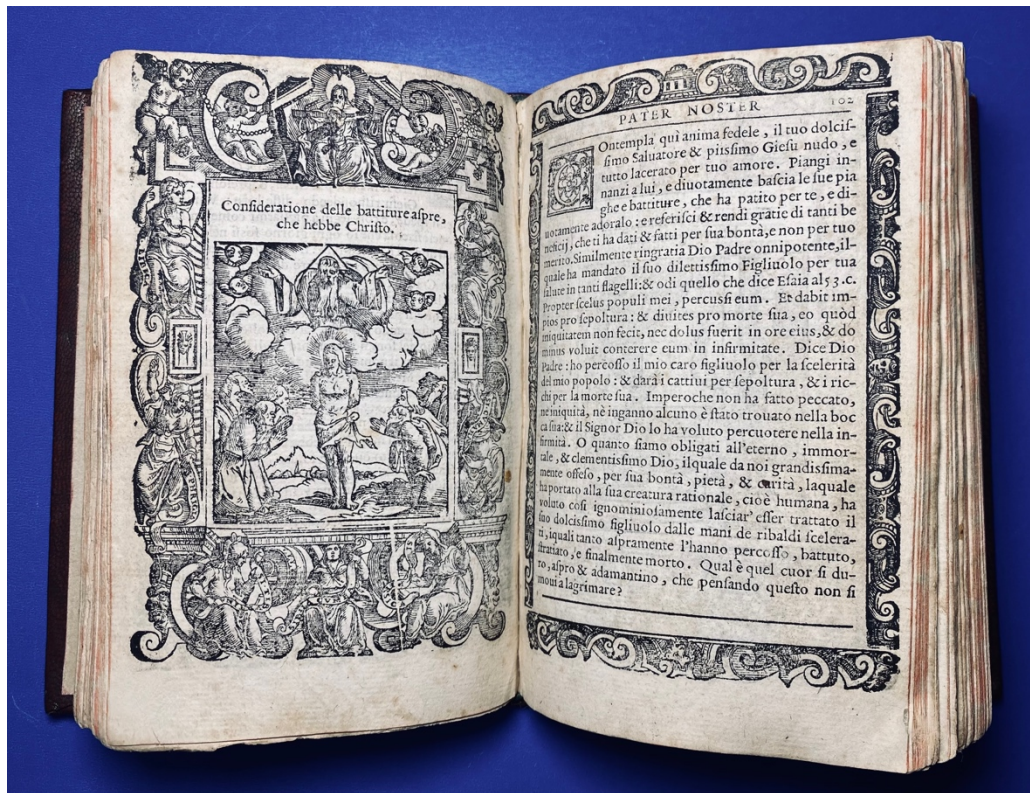 Conſideratione delle battiture aſpre,
che hebbe Chriſto.
PATER NOSTER 102
COntempla qui anima fedele, il tuo dolciſ-
ſimo Saluatore & piiſſimo Gieſu nudo, e
tutto lacerato per tuo amore. Piangi in-
nanzi a lui, e diuotamente baſcia le ſue pia
ghe e battiture, che ha patito per te, e di-
uotamente adoralo: e referiſci & rendi gratie di tanti be
neficij, che ti ha dati & fatti per ſua bontà, e non per tuo
merito. Similmente ringratia Dio Padre onnipotente, il-
quale ha mandato il ſuo dilettiſſimo Figliuolo per tua
ſalute in tanti flagelli: & odi quello che dice Eſaia al 53.c.
Propter ſcelus populi mei, percuſſi eum. Et dabit im-
pios pro ſepoltura: & diuites pro morte ſua, eo quòd
iniquitatem non fecit, nec dolus fuerit in ore eius, & do
minus voluit conterere eum in infirmitate. Dice Dio
Padre: ho percoſſo il mio caro figliuolo per la ſcelerità
del mio popolo: & darà i cattiui per ſepoltura, & i ric-
chi per la morte ſua. Imperoche non ha fatto peccato,
nè iniquità, nè inganno alcuno è ſtato trouato nella boc
ca ſua: & il Signor Dio lo ha voluto percuotere nella in-
firmità. O quanto ſiamo obligati all'eterno, immor-
tale, & clementiſſimo Dio, ilquale da noi grandiſſima-
mente offeſo, per ſua bontà, pietà, & carità, laquale
ha portato alla ſua creatura rationale, cioè humana, ha
voluto coſi ignominioſamente laſciar' eſſer trattato il
ſuo dolciſſimo figliuolo dalle mani de ribaldi ſcelera-
ti, iquali tanto aſpramente l'hanno percoſſo, battuto,
ſtratiato, e finalmente morto. Qual è quel cuor ſi du-
ro, aſpro & adamantino, che penſando queſto non ſi
moui a lagrimare?